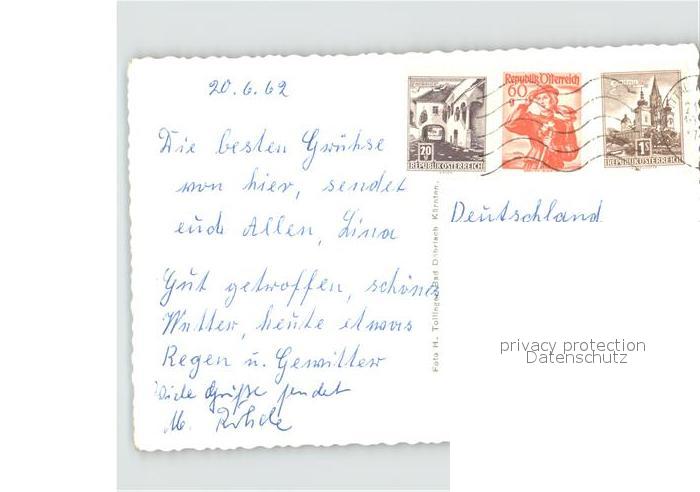 20.6.62
Die besten Grühse
von hier, sendet
euch Allen, Lina
Gut getroffen, schönes
Wetter, heute etwas
Regen u. Gewitter
Viele Grüße sendet
M. Rohde
20
REPUBLIK ÖSTERREICH
Republik Österreich
60
g
1S
REPUBLIK ÖSTERREICH
Deutschland
Foto H. Tollinger, Bad Döbriach Kärnten.
privacy protection
Datenschutz